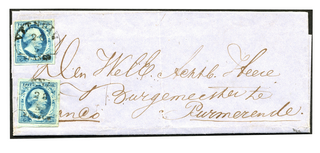 Den Well. Achtb. Heere
Burgemeester te
Franco Purmerende.